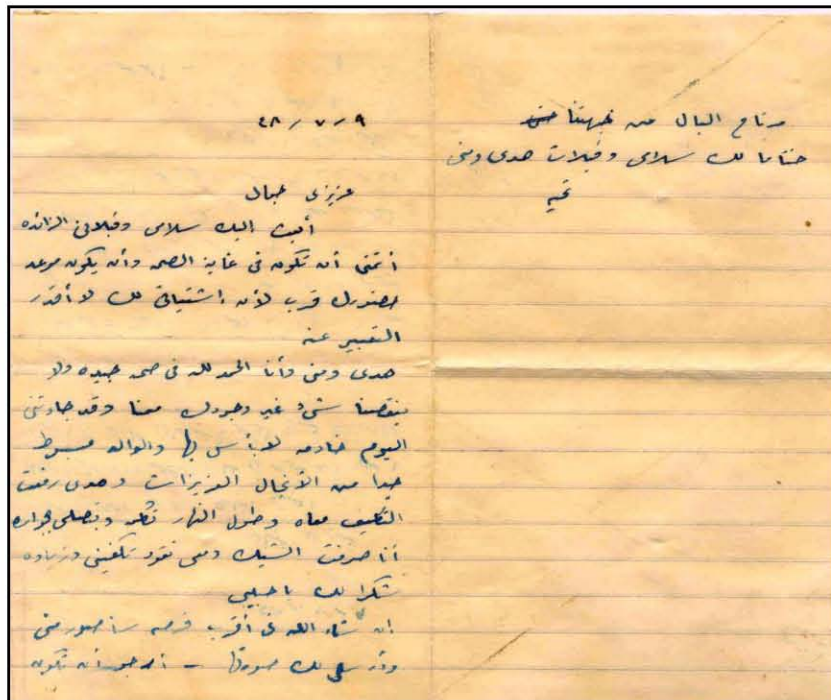 ٩ / ٧ / ٤٨
عزيزى جمال
أبعث اليك سلامى وقبلاتى الزائده
أتمنى أن تكون فى غاية الصحه وأن يكون موعد
حضورك قرب لأن اشتياقى لك لا أقدر
التعبير عنه
هدى ومنى وأنا الحمد لله فى صحه جيده ولا
ينقصنا شىء غير وجودك معنا وقد جاءتنى
اليوم خادمه لا بأس بها والوالد مبسوط
جدا من الأنجال العزيزات وهدى رفعت
التكليف معاه وطول النهار تكلمه وتصلى بجواره
أنا صرفت الشيك ومعى نقود تكفينى وزياده
شكرا لك يا حبيبى
إن شاء الله فى أقرب فرصه سأصور منى
وأرسل لك صورتها - أرجو أن تكون
مرتاح البال من جهتنا
ختاما لك سلامى وقبلات هدى ومنى
تحيه